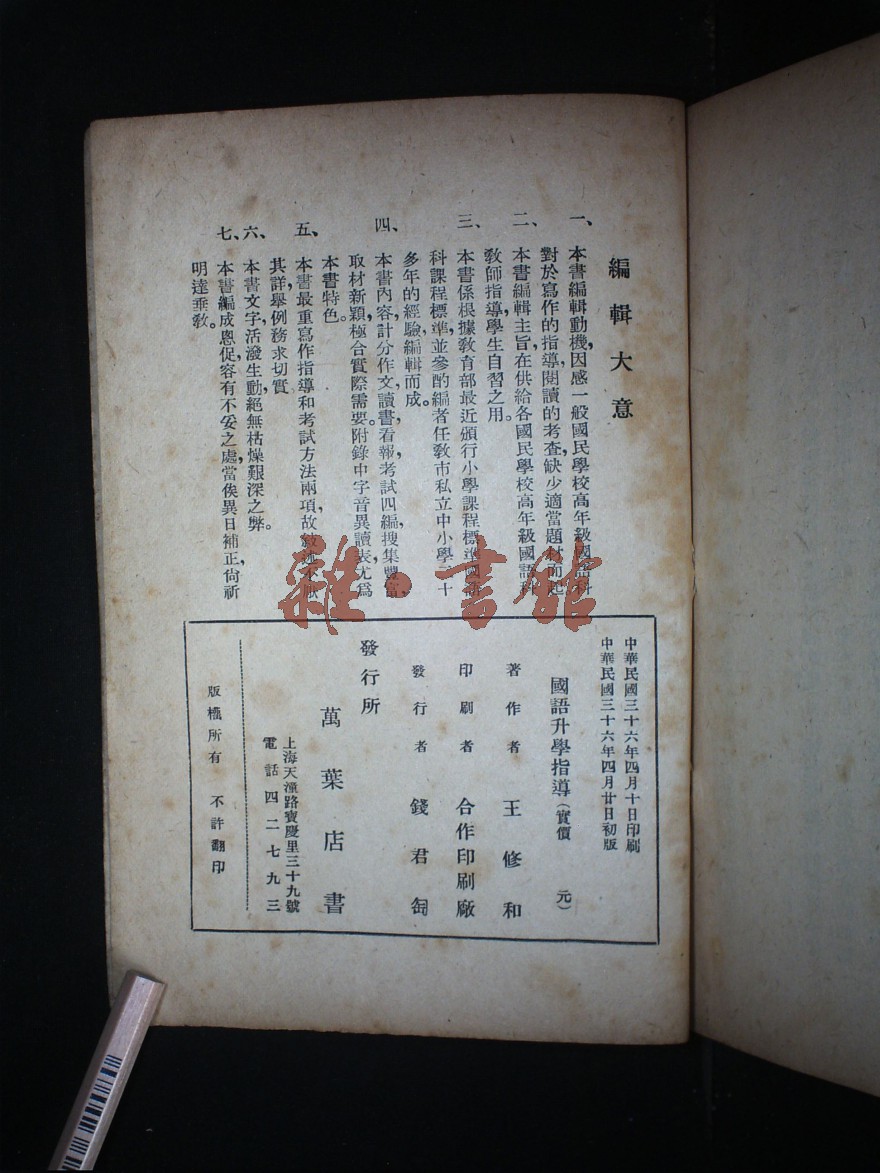 編輯大意
一、本書編輯動機,因感一般國民學校高年級國語科
對於寫作的指導,閱讀的考查,缺少適當題材而起
二、本書編輯主旨,在供給各國民學校高年級國語科
教師指導學生自習之用。
三、本書係根據教育部最近頒行小學課程標準國語
科課程標準並參酌編者任教市私立中小學二十
多年的經驗編輯而成。
四、本書內容計分作文,讀書,看報,考試四編,搜集豐富,
取材新穎,極合實際需要。附錄中字音異讀表,尤爲
本書特色。
五、本書最重寫作指導和考試方法兩項,故敘述不厭
其詳,舉例務求切實
六、本書文字活潑生動,絕無枯燥艱深之弊。
七、本書編成恩促,容有不妥之處,當俟異日補正,尙祈
明達垂教。
中華民國三十六年四月十日印刷
中華民國三十六年四月廿日初版
國語升學指導(實價 元)
著作者 王修和
印刷者 合作印刷廠
發行者 錢君匋
發行所
萬葉店書
上海天潼路寶慶里三十九號
電話四二七九三
版權所有 不許翻印
雜·書館